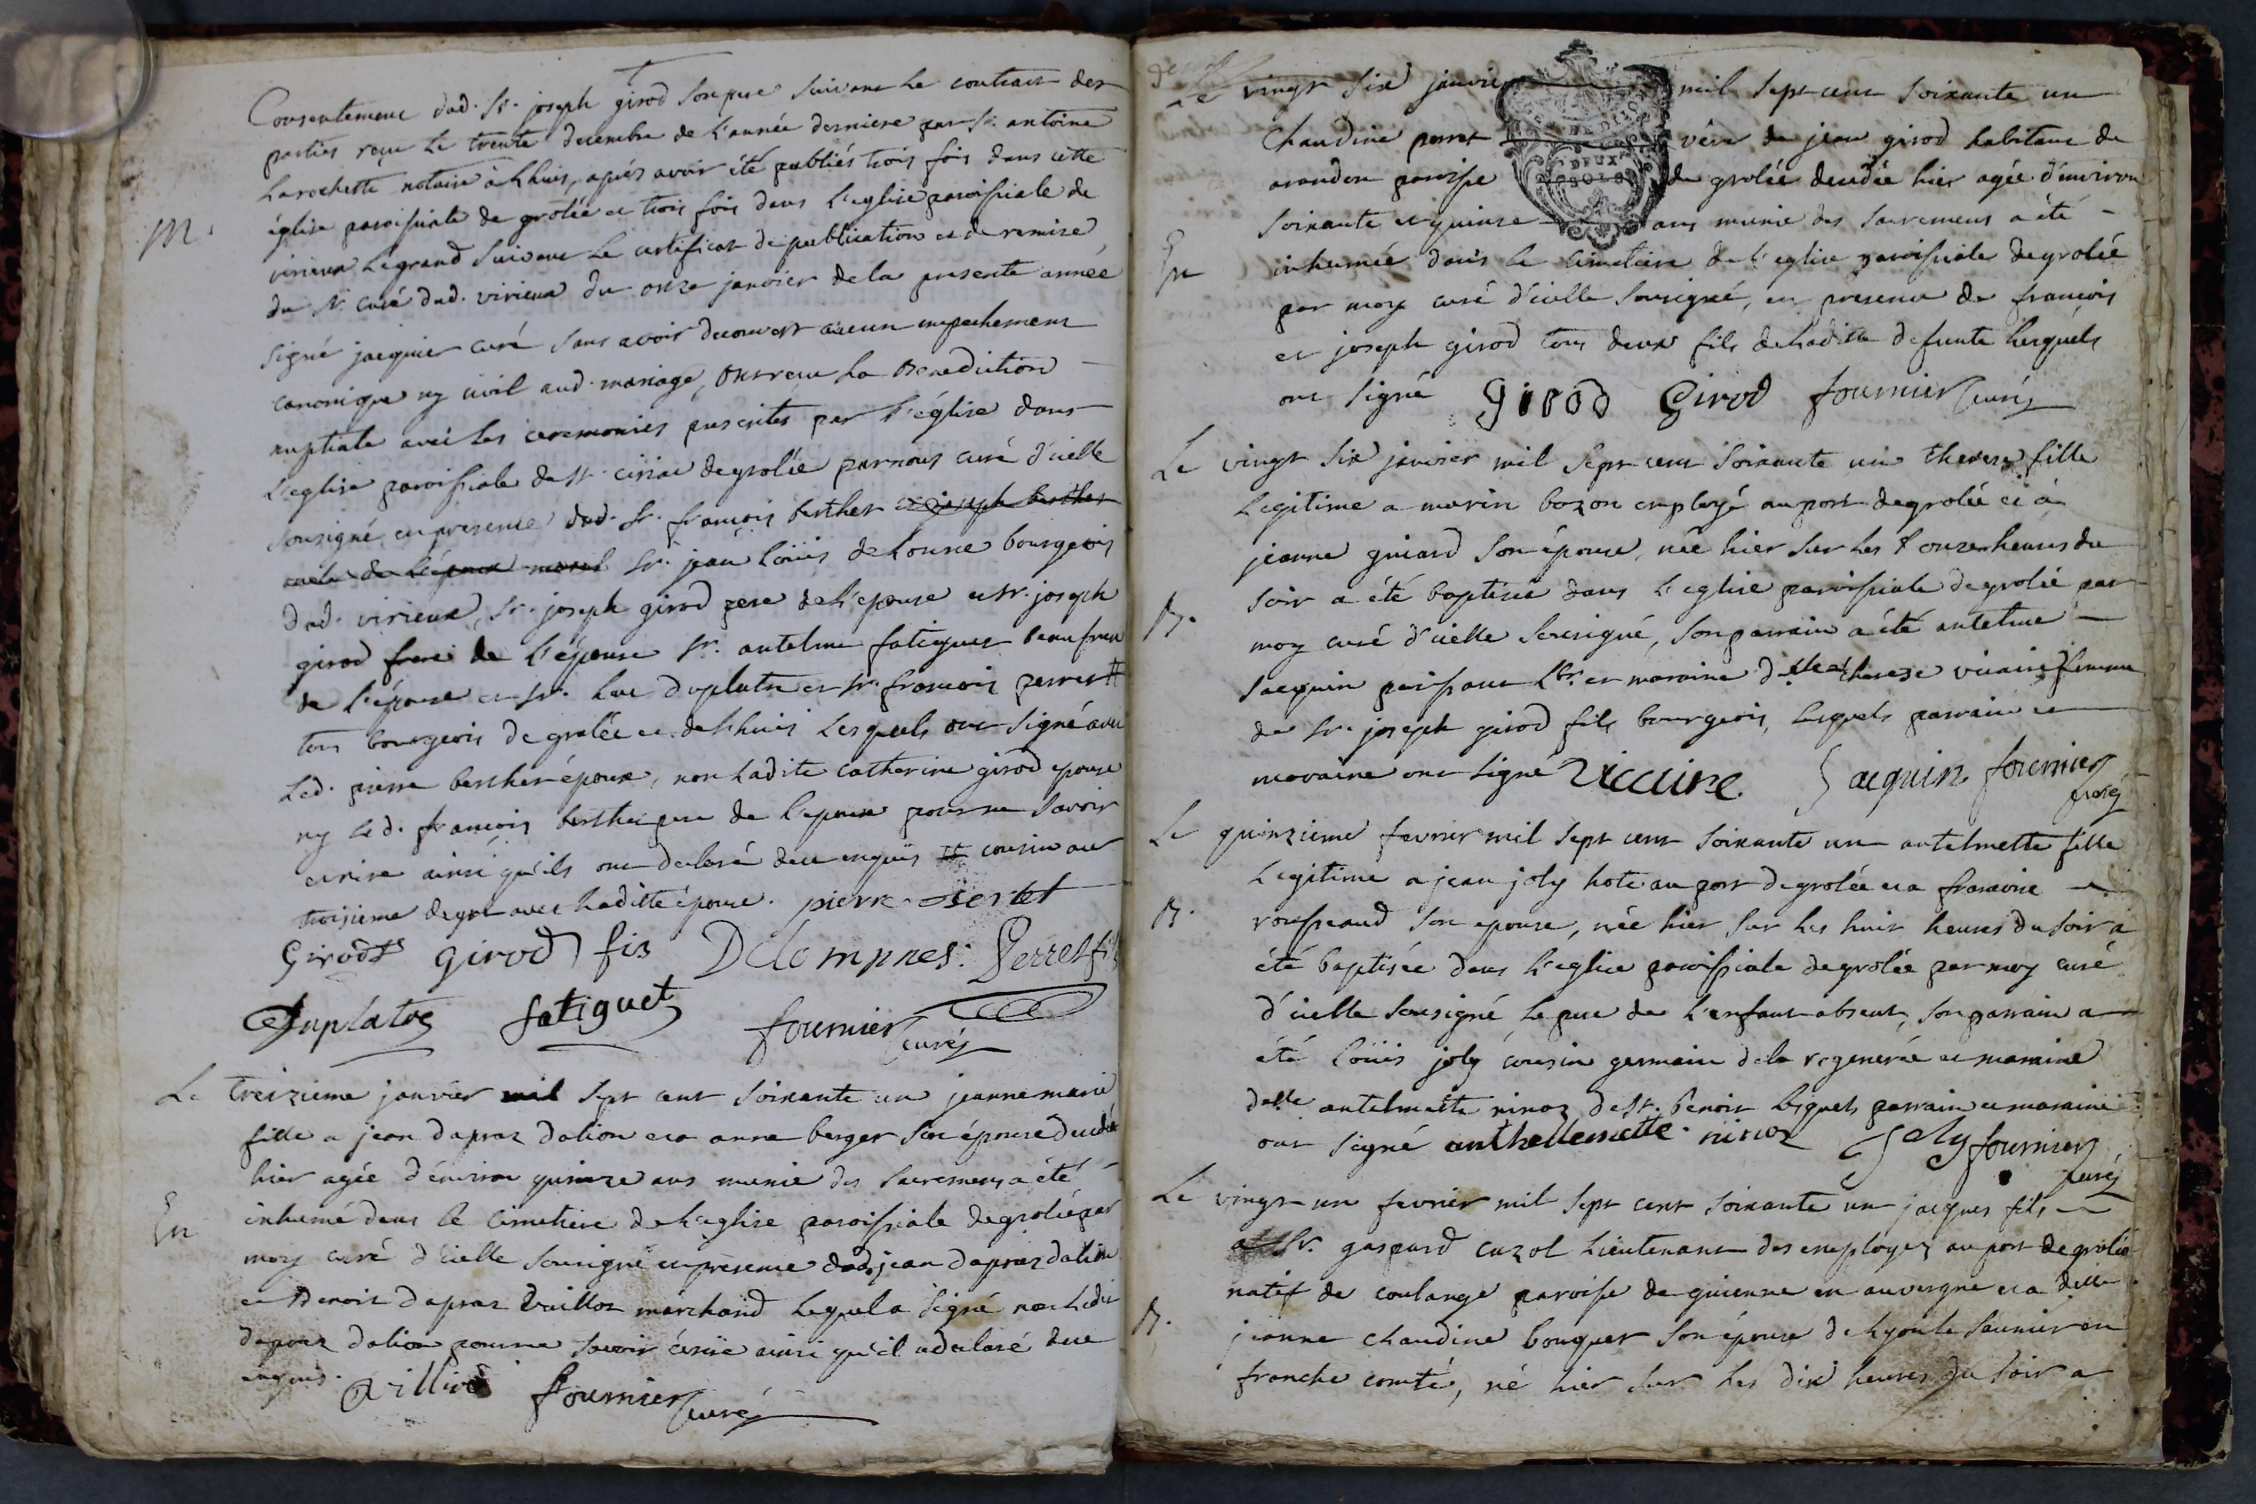 Consentement dud. Sr. joseph girod son pere suivant le contract des
parties reçu le trente decembre de l'année derniere par Sr. antoine
Larochette notaire à Lhuis, aprés avoir été publiés trois fois dans cette
église paroissiale de grolée et trois fois dans l'eglise paroissiale de
M.
virieux Legrand suivant le certificat de publication et de remise
du Sr. curé dud. virieux du onze janvier de la presente année
signé jacquier curé sans avoir decouvert aucun empechement
canonique ny civil aud. mariage, ont reçu la Benediction
nuptiale avec les ceremonies prescrites par l'église dans
l'eglise paroissiale de st. ciriac de grolée par nous curé d'icelle
sousigné en presence dud. Sr. françois berthet et joseph berthet
de l'époux Sr. jean loüis delomne bourgeois
dud. virieux, Sr. joseph girod pere de l'epouse et Sr. joseph
girod frere de l'épouse Sr. antelme fatiguet beau frere
de l'épouse et Sr. Luc duplatre et Sr. francois perret #
tous bourgeois de grolée et de Lhuis lesquels ont signé avec
led. pierre berthet époux, non ladite catherine girod epouse
ny led. francois berthet pere de l'epoux pour ne savoir
ecrire ainsi qu'ils ont declaré de ce enquis # cousin au
troisieme degré avec laditte épouse. pierre Bertet
Girod girod fis Delompnes. Perret fils
Duplatre fatiguet fournier curé
Le treizieme janvier mil sept cent soixante un jeanne marie
fille a jean dapraz dolion et a anne berger son épouse decedée
hier agée d'environ quinze ans munie des sacremens a été
En
inhumé dans le cimetiere de l'eglise paroissiale de grolée par
moy curé d'icelle sousigné en presence dud. jean dapraz dolion
et Benoit dapraz Vaillot marchand lequel a signé non ledit
dapraz dolion pour ne savoir écrire ainsi qu'il a declaré de ce
enquis. fournier curé
Le vingt six janvier mil sept cent soixante un
Claudine perret veuve de jean girod habitant de
arandon paroisse de grolée decedée hier agée d'environ
DEUX SOLS
soixante et quinze ans munie des sacremens a été
En
inhumée dans le cimetiere de l'eglise paroissiale de grolée
par moy curé d'icelle sousigné, en presence de francois
et joseph girod tous deux fils de laditte defunte lesquels
ont signé Girod Girod fournier curé
Le vingt six janvier mil sept cent soixante un therese fille
legitime a marin bozon employé au port de grolée et à
jeanne guiard son épouse, née hier sur les onze heures du
soir a été baptisée dans l'eglise paroissiale de grolée par
B.
moy curé d'icelle sousigné, son parrain a été antelme
Jacquin et maraine dlle therese vicaire femme
de Sr. joseph girod fils bourgeois, lesquels parrain et
maraine ont signé Viccaire Jacquin fournier
curé
Le quinzieme fevrier mil sept cent soixante un antelmette fille
legitime a jean joly hote au port de grolée et a francoise
B.
rousseaud son epouse, née hier sur les huit heures du soir a
été baptisée dans l'eglise paroissiale de grolée par moy curé
d'icelle sousigné le pere de l'enfant absent, son parrain a
été loüis joly cousin germain de la regenerée et maraine
delle antelmette ninoz de St. benoit lesquels parrain et maraine
ont signé anthellemette ninoz Joly fournier
curé
Le vingt un fevrier mil sept cent soixante un jacques fils
a Sr. gaspard cuzol Lieutenant des employez au port de grolée
natif de coulange paroisse de guienne en auvergne et a delle
B.
jeanne claudine bouquet son épouse de Lyon le saunier en
franche comté, né hier sur les dix heures du soir a